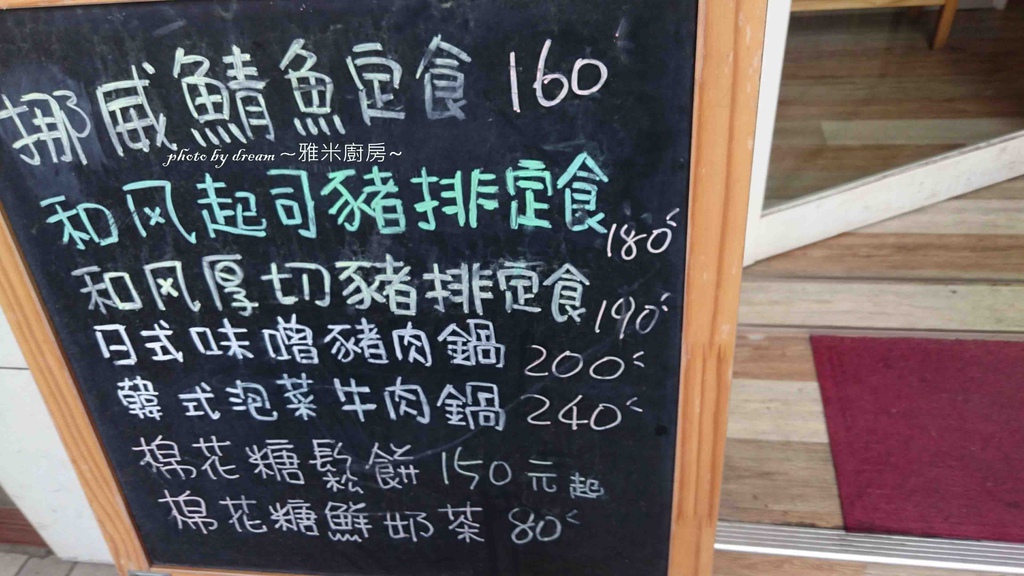 挪威鯖魚定食 160
photo by dream ~雅米廚房~
和风起司豬排定食 180
和风厚切豬排定食 190
日式味噌豬肉鍋 200
韓式泡菜牛肉鍋 240
棉花糖鬆餅 150元起
棉花糖鮮奶茶 80